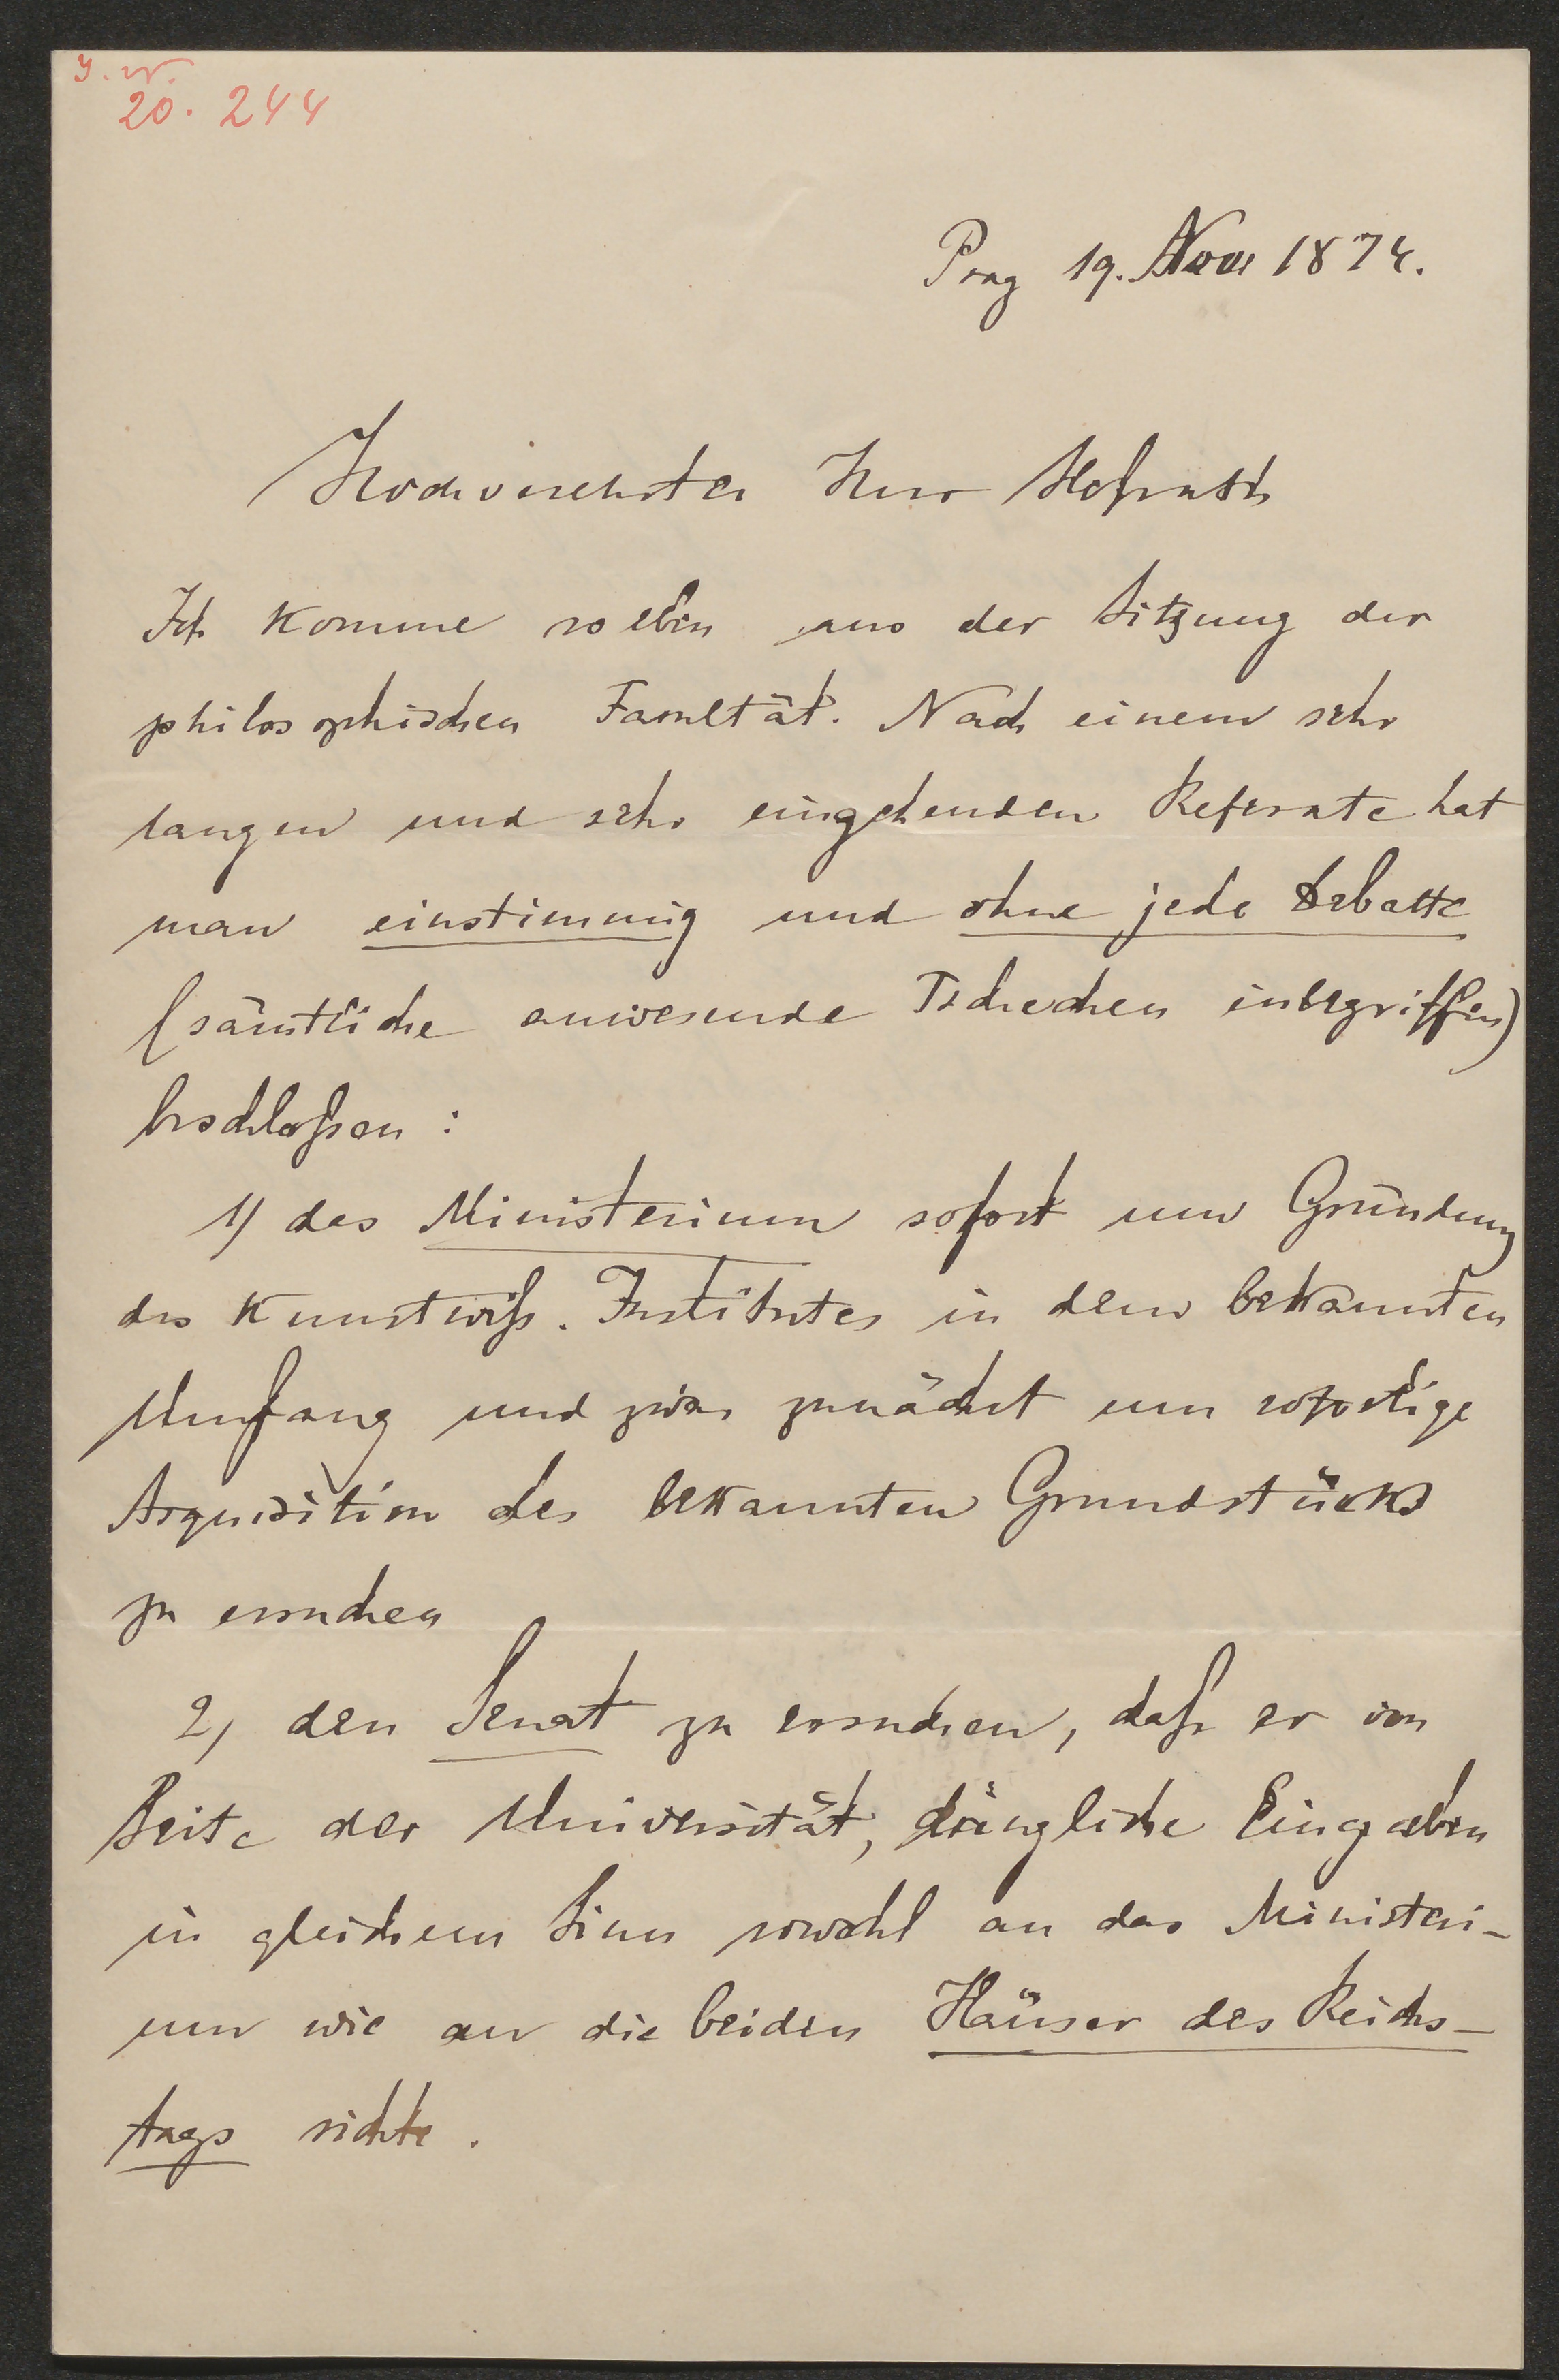 J. N.
20.244
Prag 19. Nov 1874.
Hochverehrter Herr Hofrath
Ich komme soeben aus der Sitzung der
philosophischen Facultät. Nach einem sehr
langen und sehr eingehenden Referate hat
man einstimmig und ohne jede Debatte
(sämtliche anwesende Tschechen inbegriffen)
beschloßen:
1) das Ministerium sofort um Gründung
des Kunstwiß. Institutes in dem bekannten
Umfang und zwar zunächst um sofortige
Acquisition des bekannten Grundstücks
zu ersuchen
2) den Senat zu ersuchen, daß er von
Seite der Universität, dringliche Eingaben
in gleichem Sinn sowohl an das Ministeri-
um wie an die beiden Häuser des Reichs-
tags richte.